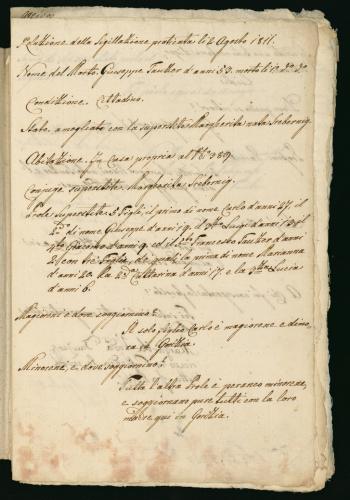 Relazione della Sigillazione praticata li 2 Agosto 1811.
Nome del Morto. Giuseppe Taukher d'anni 53. morto li
Condizione. Cittadino.
Stato. amogliato con la superstite Margherita nata Srebernig.
Abitazione. In Casa propria al N° 389.
Conjuge superstite. Margherita Srebernig.
Prole Superstite. 5 Figli, il primo di nome Carlo d'anni 27. il
2do di nome Giuseppe d'anni 19. il 3zo Luigi d'anni 13. il
4to Giacomo d'anni 9. ed il 5to Francesco Taukher d'anni
2. con tre Figlie, le quali la prima di nome Marianna
d'anni 20. la 2da Catterina d'anni 17. e la 3za Lucia
d'anni 6.
Magiori e dove soggiornino?
Il solo figlio Carlo è magiorene e dimo
ra in Gorizia.
Minorena, e dove soggiornino?
Tutta l'altra Prole è peranco minorena,
e soggiornano pure tutti con la loro
madre qui in Gorizia.